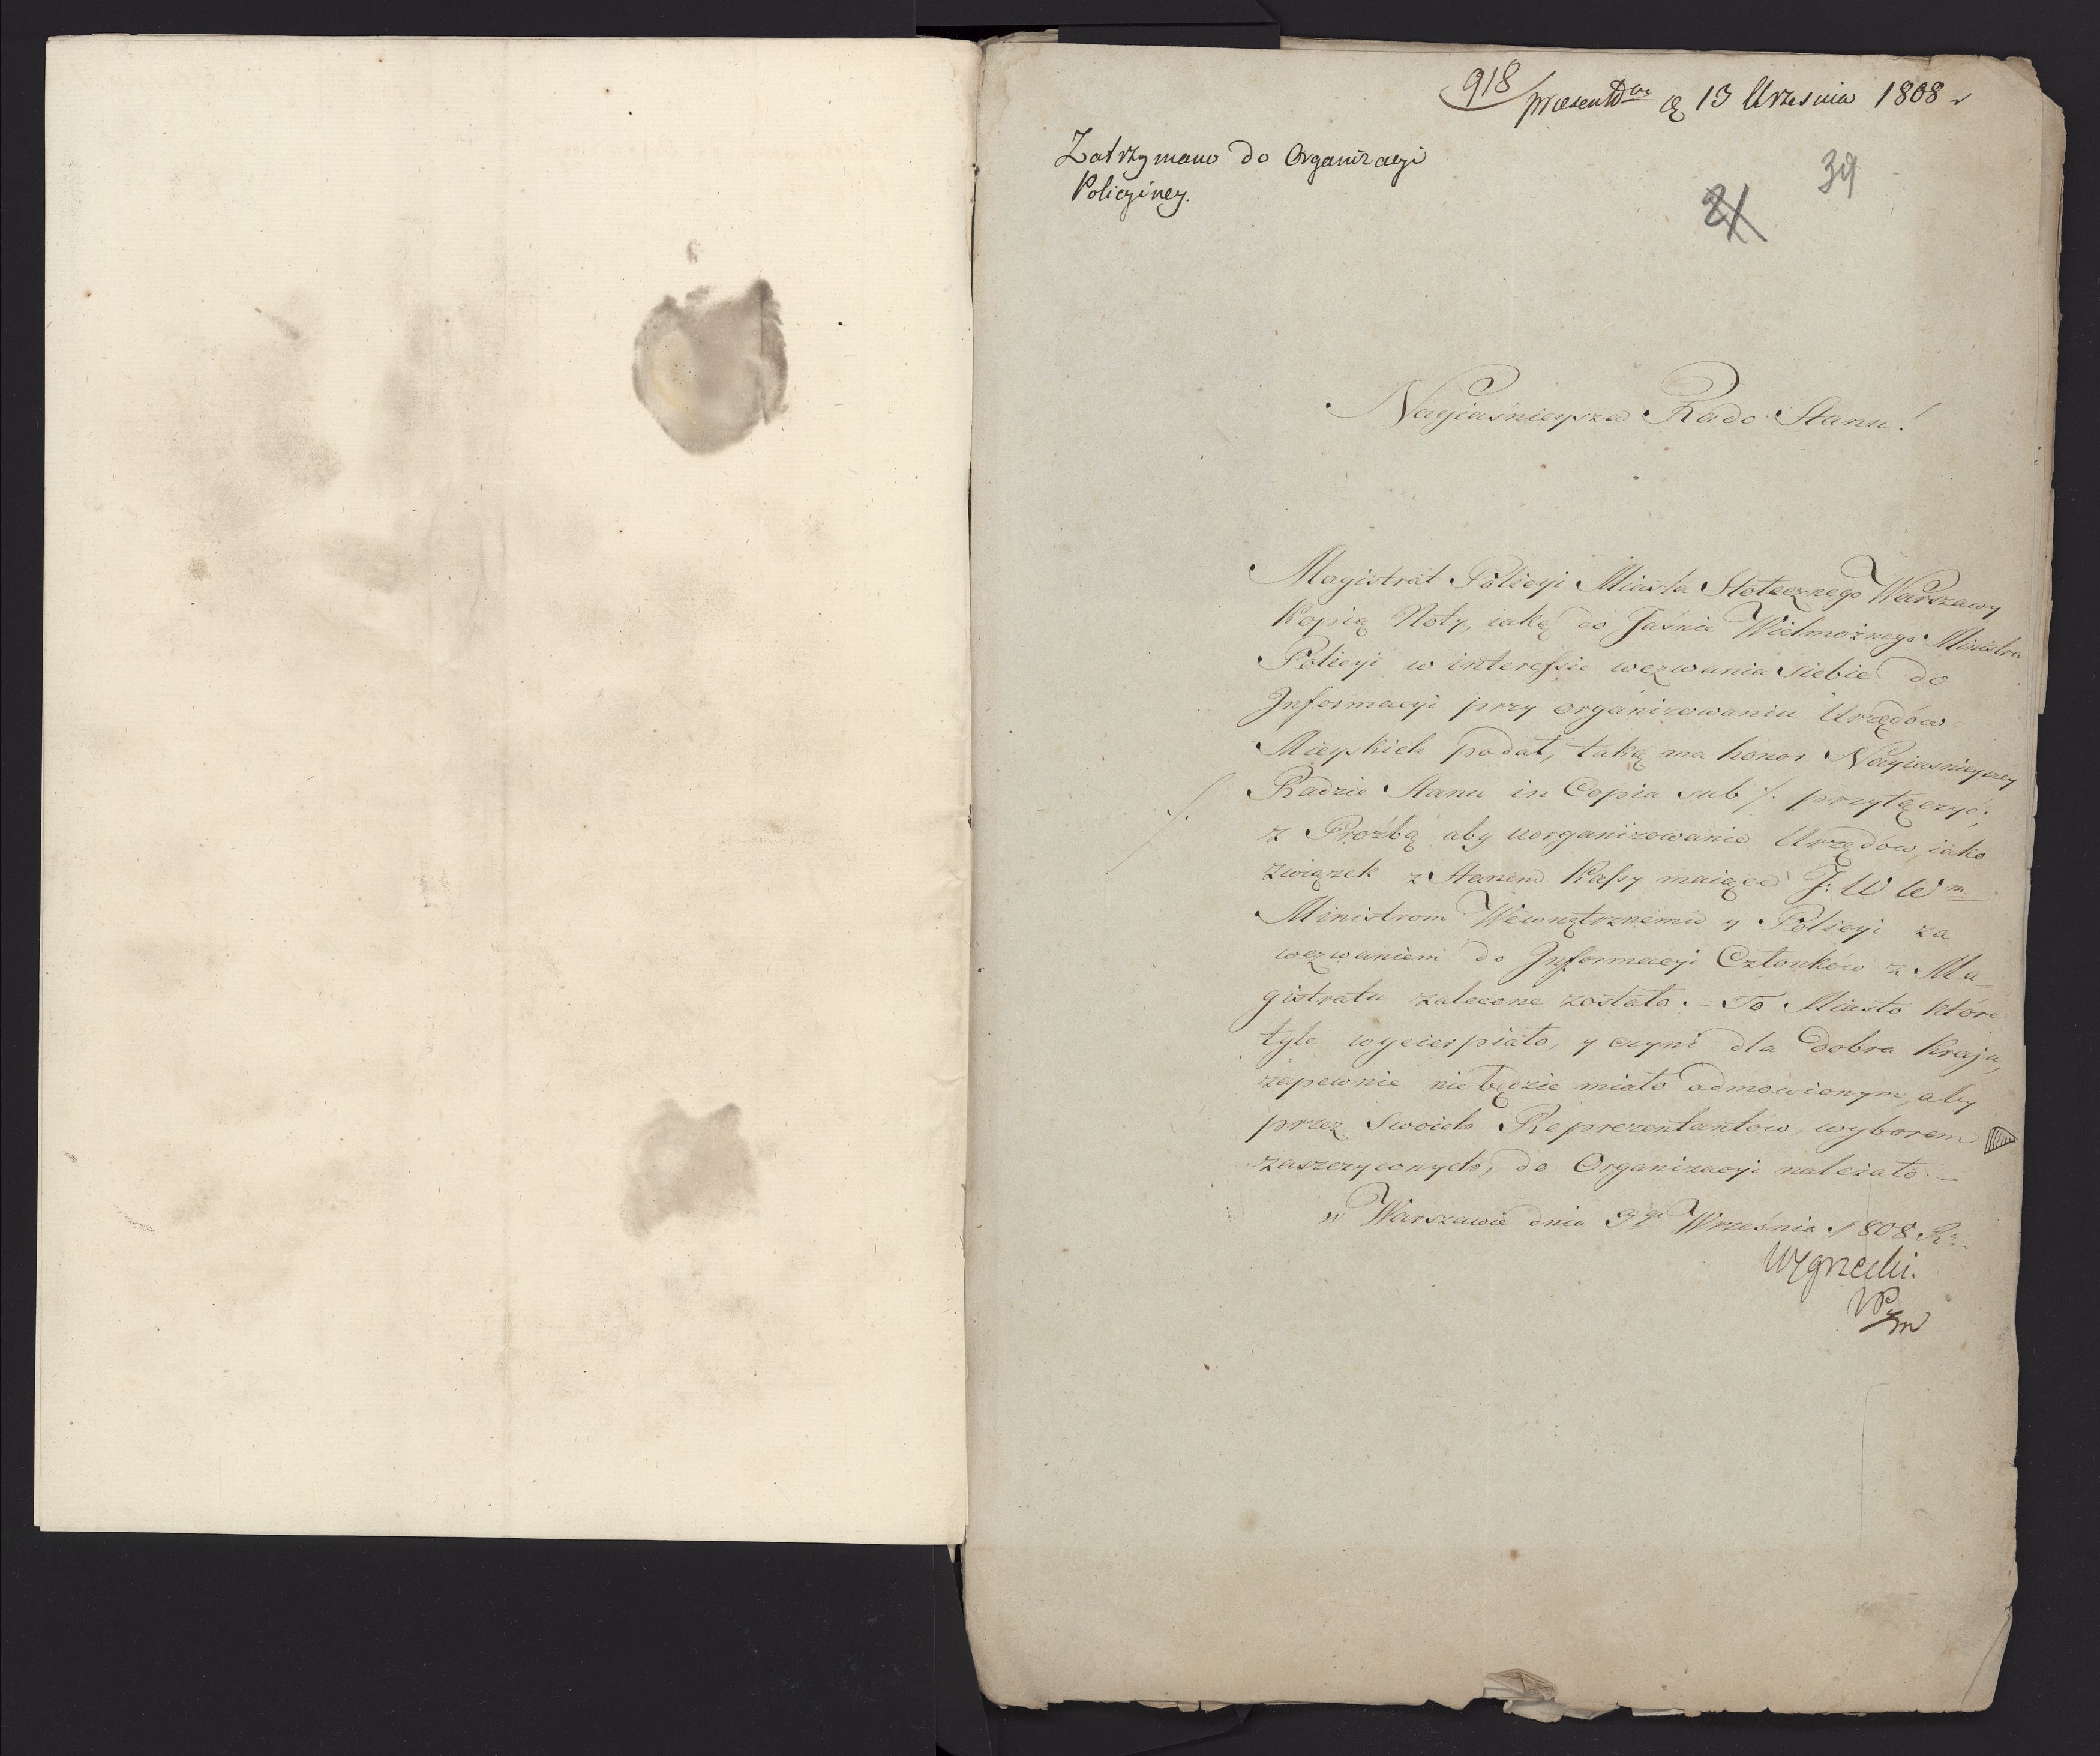 918
13 Września 1808 r
Zatrzymano do Organizacyi
Policyiney.
39
21
Nayiaśnieysza Rado Stanu!
Magistrat Policyi Miasta Stołecznego Warszawy
Kopią Noty, iaką do Jaśnie Wielmożnego Ministra
Policyi w interessie wezwania siebie do
Informacyi przy organizowaniu Urzędów
Mieyskich podał, taką ma honor Nayiaśnieyszey
Radzie Stanu in Copia sub /. przyłączyć;
/.
z Proźbą aby uorganizowanie Urzędów, iako
związek z Stanem Kassy maiące J: W W m
Ministrom Wewnętrznemu y Policyi za
wezwaniem do Informacyi Członków z Ma-
gistratu zalecone zostało. - To Miasto które
tyle wycierpiało, y czyni dla dobra Kraju,
zapewnie nie będzie miało odmówionym, aby
przez Swoich Reprezentantów, wyborem
zaszczyconych, do Organizacyi należało. -
w Warszawie dnia 3go Września 1808 R:
Wygrzecki.